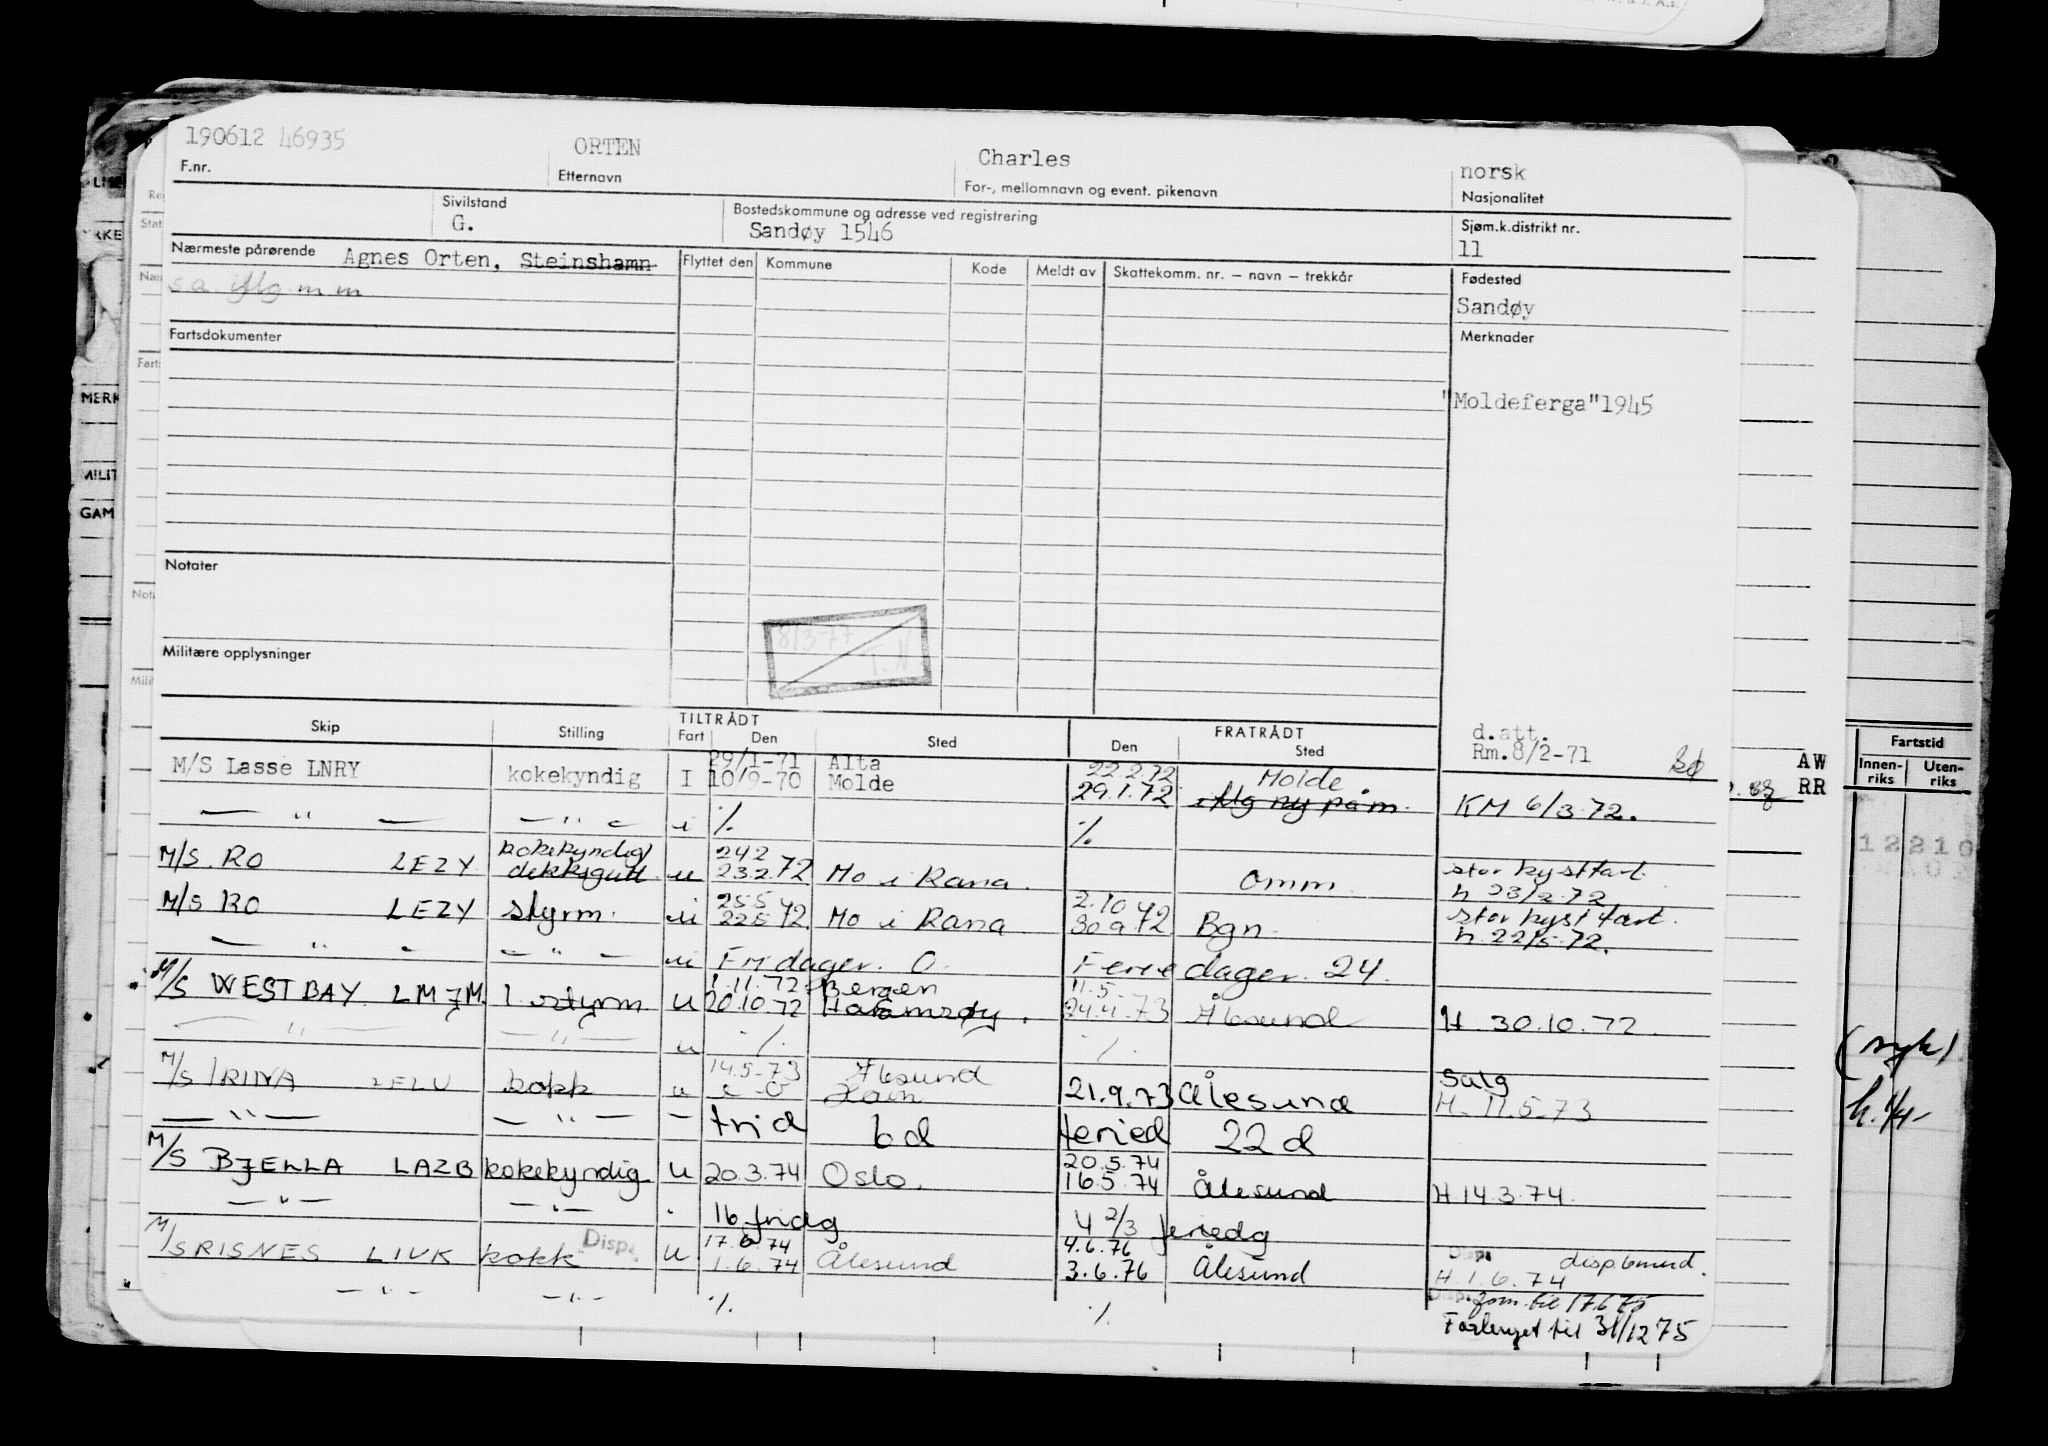 190612 46935 ORTEN Charles norsk
F.nr. Etternavn For-, mellomnavn og event. pikenavn Nasjonalitet
Sivilstand Bostedskommune og adresse ved registrering Sjøm.k.distrikt nr.
G. Sandøy 1546 11
Nærmeste pårørende Agnes Orten, Steinshamn Flyttet den Kommune Kode Meldt av Skattekomm. nr. – navn – trekkår Fødested
Sandøy
Fartsdokumenter Merknader
"Moldeferga"1945
Notater
8/3-77
T.N
Militære opplysninger
TILTRÅDT FRATRÅDT d.att.
Skip Stilling Fart Den Sted Den Sted Rm.8/2-71
29/1-71 Alta 22.2.72 Molde
M/S Lasse LNRY kokekyndig I 10/9-70 Molde 29.1.72 KM 6/3.72.
— " — — " — i ./. ./.
kokekyndig 242 stor kystfart
M/S RO LEZY dekksgutt u 232 72 Mo i Rana omm h 23/2.72
255 2.10 stor kystfart.
M/S RO LEZY styrm. ui 225 72 Mo i Rana 309 72 Bgn. h 22/5.72.
— " — — " — ui Fridager. 0. Feriedager. 24.
1.11.72 Bergen 11.5
M/S WESTBAY LMJM 1 styrm u 20.10.72 Haramsøy. 24.4.73 Ålesund H 30.10.72.
— " — — " — u ./. ./.
14.5.73 Ålesund Salg
M/S IRINA LELU kokk u 21.9.73 Ålesund H. 11.5.73
— " — — " — — frid 6d feried 22d
20.5.74
M/S BJELLA LAZB kokekyndig u 20.3.74 Oslo. 16.5.74 Ålesund H.14.3.74.
— " — — " — 16 fridg 4 2/3 feriedg
Disp. 17.6.74 4.6.76 Disp. disp.6mnd.
M/S RISNES LIVK kokk u 1.6.74 Ålesund 3.6.76 Ålesund H.1.6.74
— " — — " — ./. ./. Disp. til 17.6.75
Forlenget til 31/12 75
AW
RR
Fartstid
Innen-riks Uten-riks
MERK
MILIT
GAM
(syk)